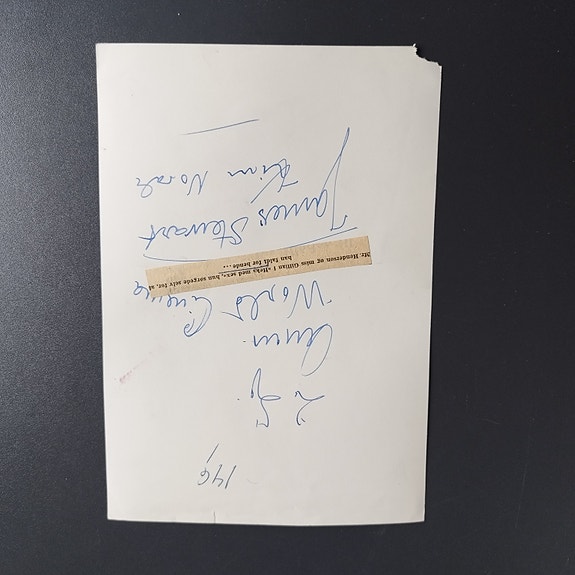 146
2 Sp.
World Cinema
Mr. Henderson og miss Gillian i »Heks med sex«, hun sørgede selv for, at
han faldt for hende...
James Stewart
Kim Novak